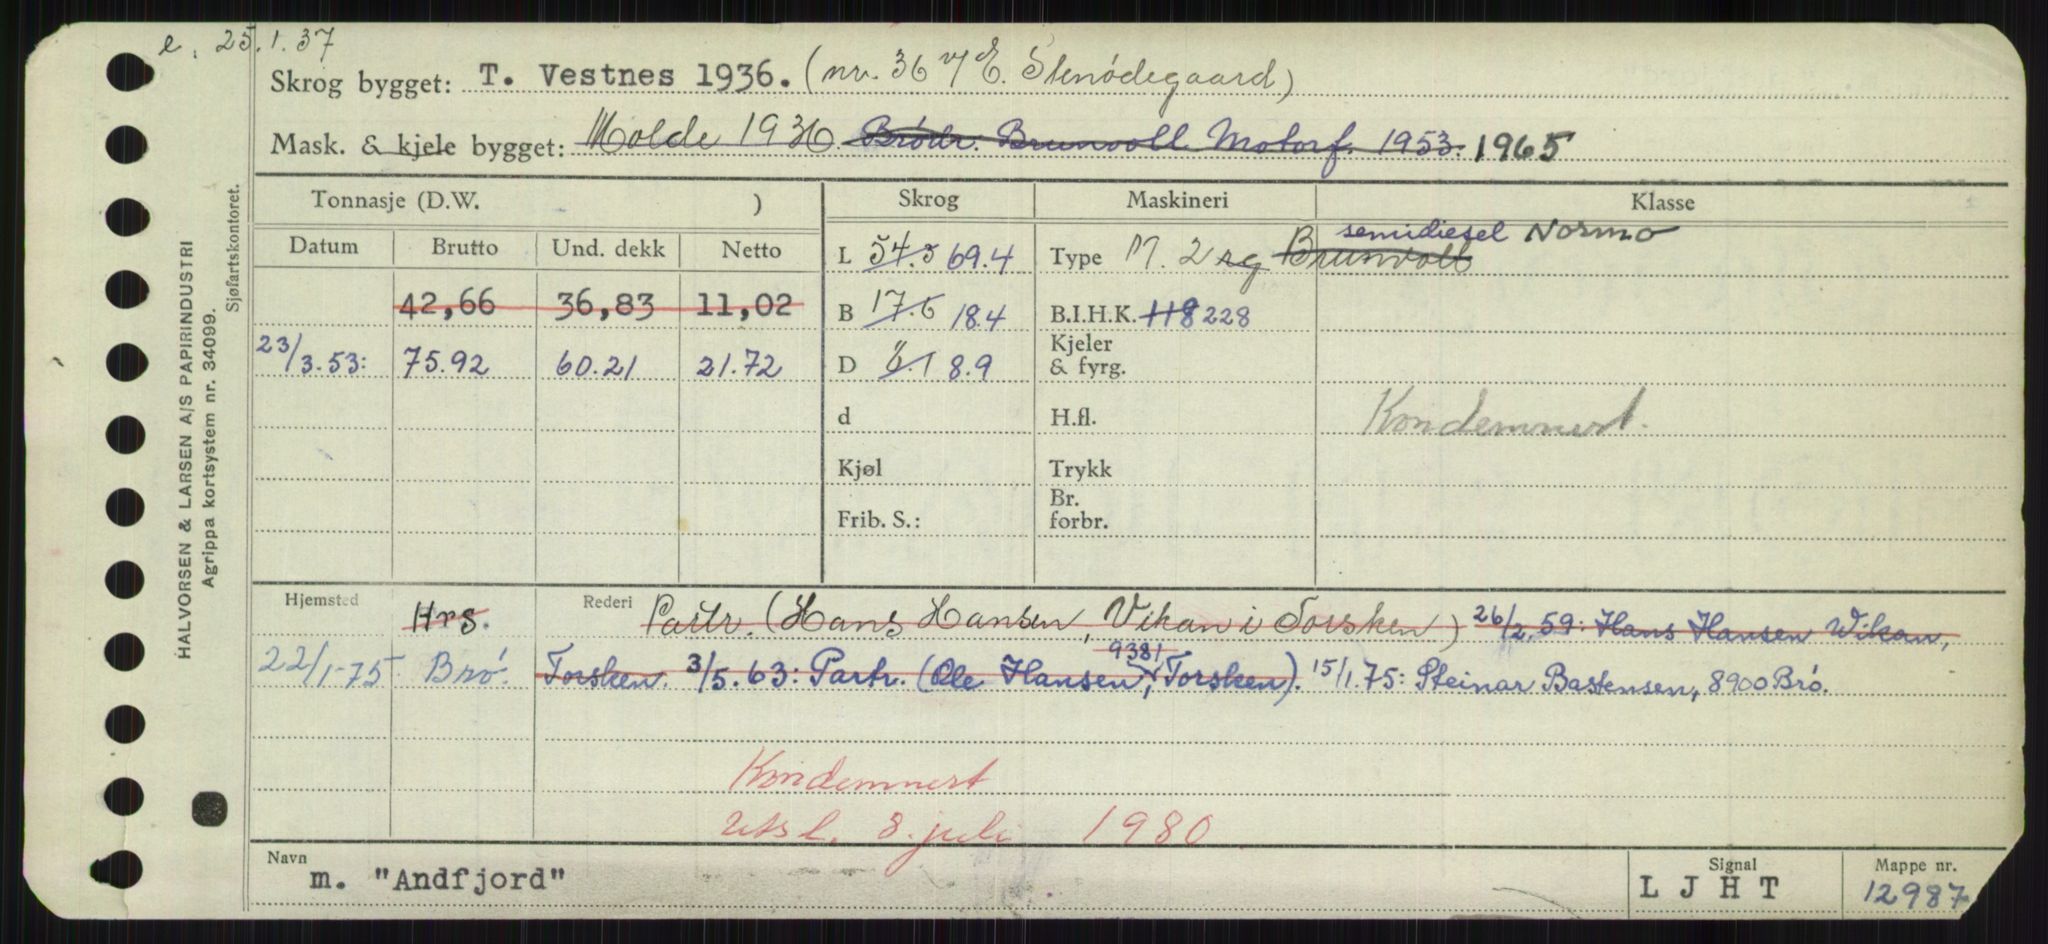 e. 25.1.37
Skrog bygget: T. Vestnes 1936. (nr. 36 v/ E. Stenødegaard)
Mask. & kjele bygget: Molde 1936 Brødr. Brunvoll Motorf. 1953. 1965
Tonnasje (D.W. ) Skrog Maskineri Klasse
Datum Brutto Und. dekk Netto
L 54.5 69.4 Type M. 2 rg Brunvoll semidiesel Normo
42,66 36,83 11,02 B 17.6 18.4 B.I.H.K. 118 228
23/3.53: 75.92 60.21 21.72 D 8.1 8.9 Kjeler & fyrg.
d H.fl. Kondemnert.
Kjøl Trykk
Frib. S.: Br. forbr.
Hjemsted Hrs. Rederi Partr. (Hans Hansen, Vikan i Torsken) 26/2.59: Hans Hansen Wikan,
22/1-75 Brø. Torsken. 3/5.63: Partr. (Ole Hansen, 9381 Torsken). 15/1.75: Steinar Bastensen, 8900 Brø.
Kondemnert
utsl. 8. juli 1980
Navn Signal Mappe nr.
m. "Andfjord" L J H T 12987
HALVORSEN & LARSEN A/S PAPIRINDUSTRI
Agrippa kortsystem nr. 34099.
Sjøfartskontoret.